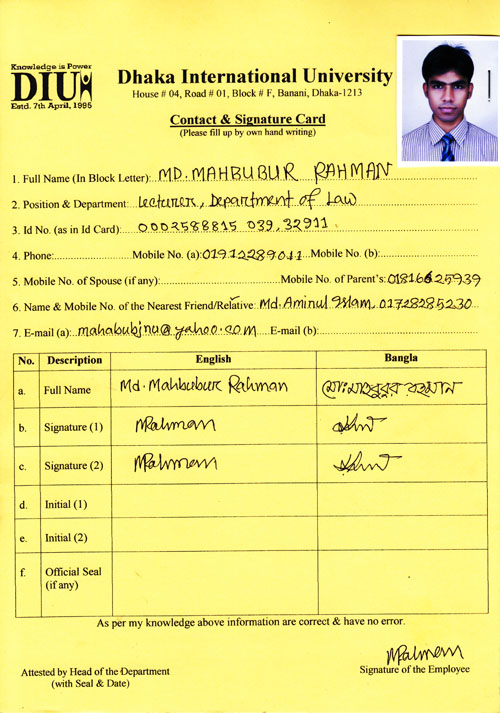 Knowledge is Power
DIU
Estd. 7th April, 1995
Dhaka International University
House # 04, Road # 01, Block # F, Banani, Dhaka-1213
Contact & Signature Card
(Please fill up by own hand writing)
1. Full Name (In Block Letter): MD. MAHBUBUR RAHMAN
2. Position & Department: Lecturer, Department of Law
3. Id No. (as in Id Card): 0002588815 039, 32911
4. Phone: Mobile No. (a): 01912289011 Mobile No. (b):
5. Mobile No. of Spouse (if any): Mobile No. of Parent's: 01816625939
6. Name & Mobile No. of the Nearest Friend/Relative: Md. Aminul Islam 01728285230
7. E-mail (a): mahabubjnu@yahoo.com E-mail (b):
No. Description English Bangla
a. Full Name Md. Mahbubur Rahman মোঃ মাহবুবুর রহমান
b. Signature (1) MRahman
c. Signature (2) MRahman
d. Initial (1)
e. Initial (2)
f. Official Seal
(if any)
As per my knowledge above information are correct & have no error.
MRahman
Attested by Head of the Department Signature of the Employee
(with Seal & Date)